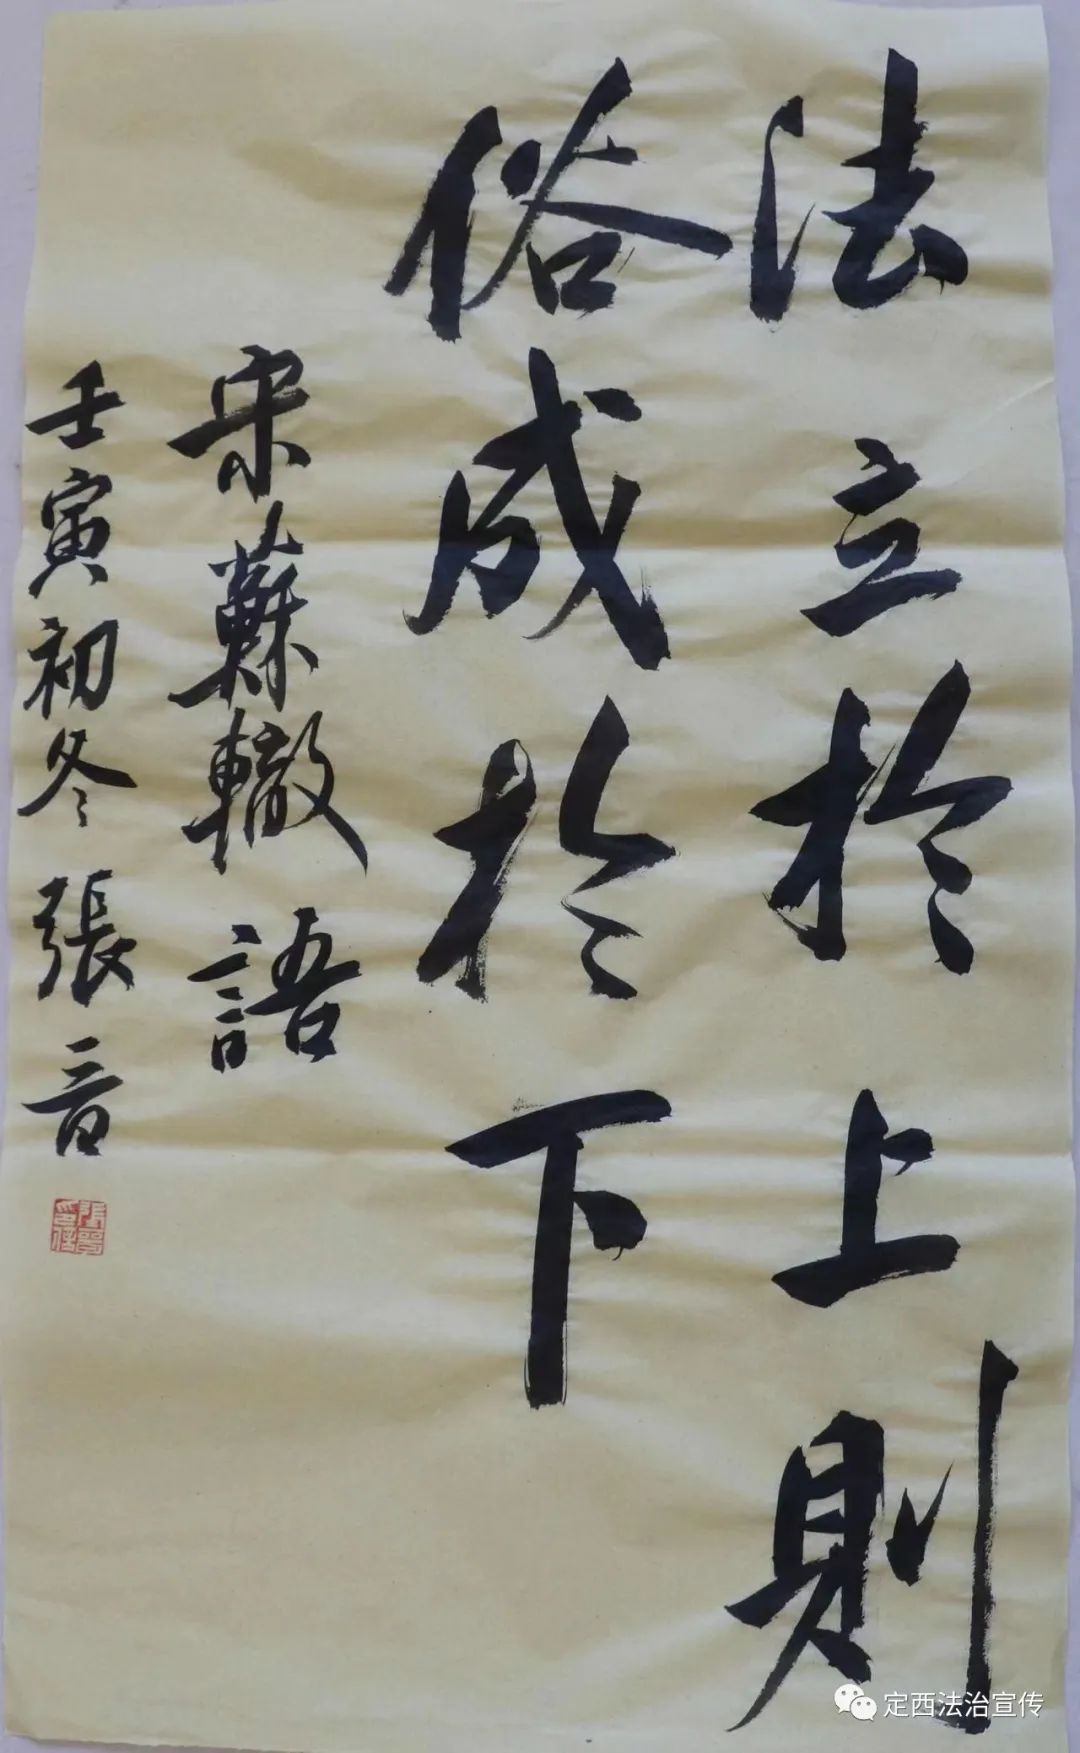 法立於上則
俗成於下
宋蘇轍語
壬寅初冬張音
定西法治宣传